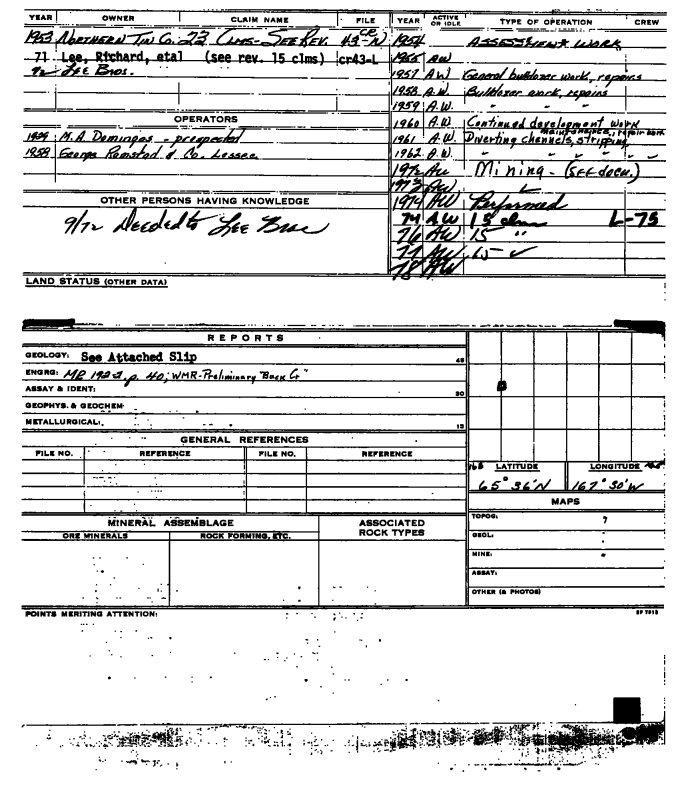 YEAR OWNER CLAIM NAME FILE
1953 NORTHERN TIN CO. 23 CLMS - SEE REV. 43-CR-N
71 Lee, Richard, etal (see rev. 15 clms) cr43-L
72 - LEE BROS.
OPERATORS
M.A. Domingos - prospected
1958 George Ramstad & Co. Lessee
OTHER PERSONS HAVING KNOWLEDGE
9/72 Deeded to Lee Bros
YEAR ACTIVE OR IDLE TYPE OF OPERATION CREW
1954 ASSESSMENT WORK
1955 AW
1957 AW General bulldozer work, repairs
1958 A.W. Bulldozer work, repairs
1959 A.W. " " "
1960 A.W. Continued development work
maintenance, repair work
1961 A.W. Diverting channels, stripping
1962 A.W. " " " "
1972 AW Mining - (SEE docu.)
1973 AW ✓
1974 AW Performed
74 AW 15 clm L-75
76 AW 15 "
77 AW 15 ✓
78 AW
LAND STATUS (OTHER DATA)
REPORTS
GEOLOGY: See Attached Slip 45
ENGRG: MR 1922, p. 40; WMR-Preliminary "Buck Cr"
ASSAY & IDENT: 20
GEOPHYS. & GEOCHEM
METALLURGICAL: 12
GENERAL REFERENCES
FILE NO. REFERENCE FILE NO. REFERENCE
LATITUDE LONGITUDE
65° 36'N 167° 30'W
MAPS
TOPOG: 7
GEOL:
MINE:
ASSAY:
OTHER (& PHOTOS)
MINERAL ASSEMBLAGE ASSOCIATED ROCK TYPES
ORE MINERALS ROCK FORMING, ETC.
POINTS MERITING ATTENTION: SP 7012